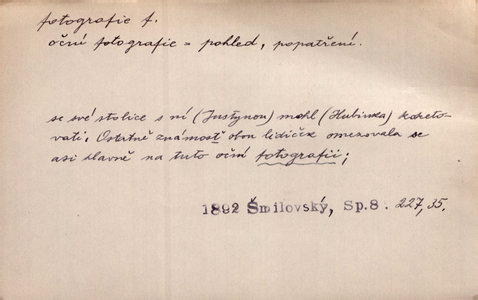 fotografie f.
oční fotografie = pohled, popatření.
se své stolice s ní (Justynou) mohl (Hubinka) karetovati. Ostatně známost obou lidiček omezovala se
asi hlavně na tuto oční fotografii;
1892 Šmilovský, Sp.8. 227,35.